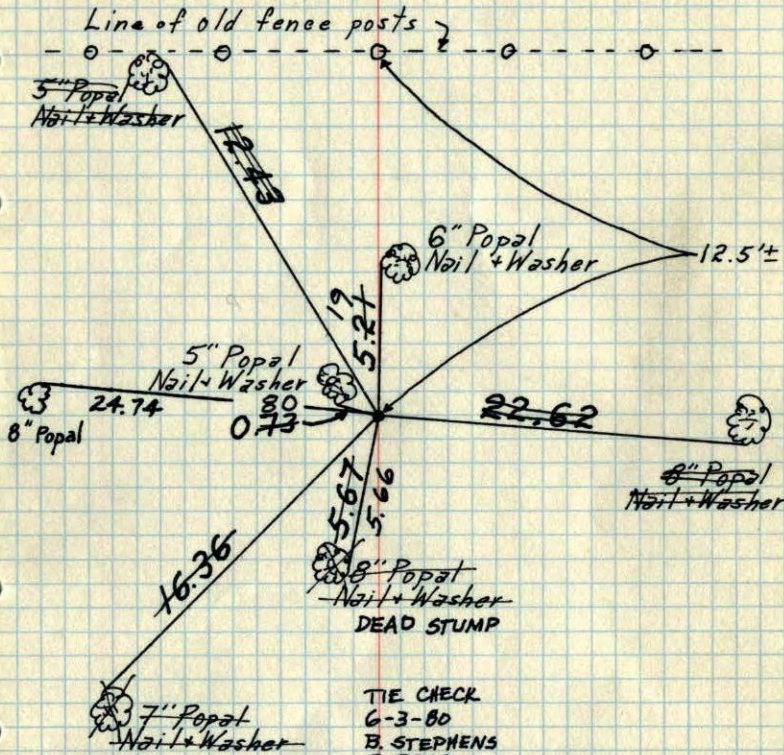 Line of old fence posts
5" Popal
Nail + Washer
12.43
6" Popal
Nail + Washer
12.5'±
19
5.21
5" Popal
Nail + Washer
24.74
80
0.73
22.62
8" Popal
8" Popal
Nail + Washer
5.67
5.66
16.36
8" Popal
Nail + Washer
DEAD STUMP
7" Popal
Nail + Washer
TIE CHECK
6-3-80
B. STEPHENS